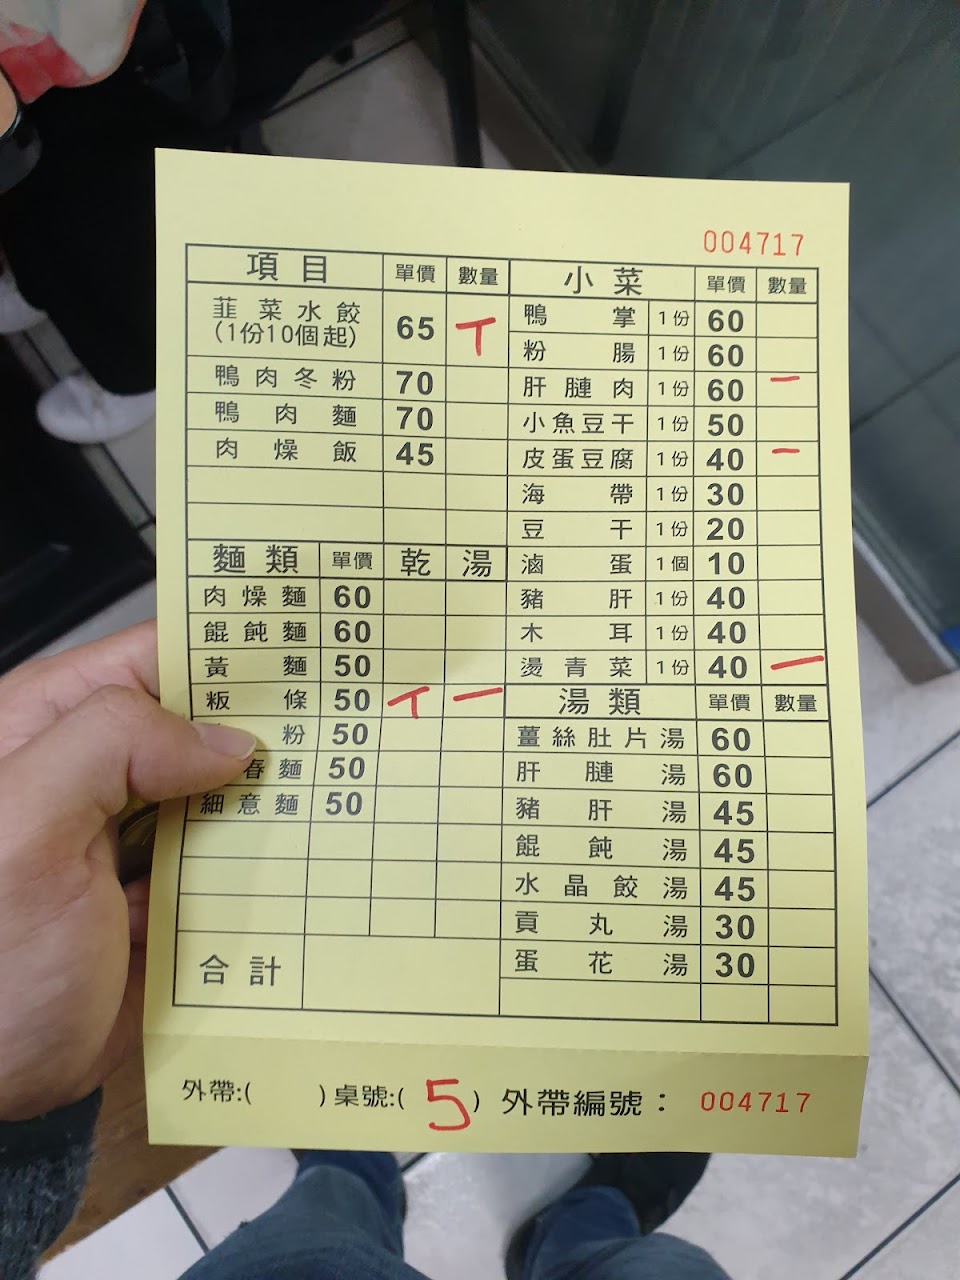 004717
項目 單價 數量
韮菜水餃
(1份10個起) 65 丅
鴨肉冬粉 70
鴨肉麵 70
肉燥飯 45
麵類 單價 乾 湯
肉燥麵 60
餛飩麵 60
黃麵 50
粄條 50 丅 一
粉 50
春麵 50
細意麵 50
合計
小菜 單價 數量
鴨掌 1份 60
粉腸 1份 60
肝腱肉 1份 60 一
小魚豆干 1份 50
皮蛋豆腐 1份 40 一
海帶 1份 30
豆干 1份 20
滷蛋 1個 10
豬肝 1份 40
木耳 1份 40
燙青菜 1份 40 一
湯類 單價 數量
薑絲肚片湯 60
肝腱湯 60
豬肝湯 45
餛飩湯 45
水晶餃湯 45
貢丸湯 30
蛋花湯 30
外帶:( )桌號:( 5 ) 外帶編號： 004717